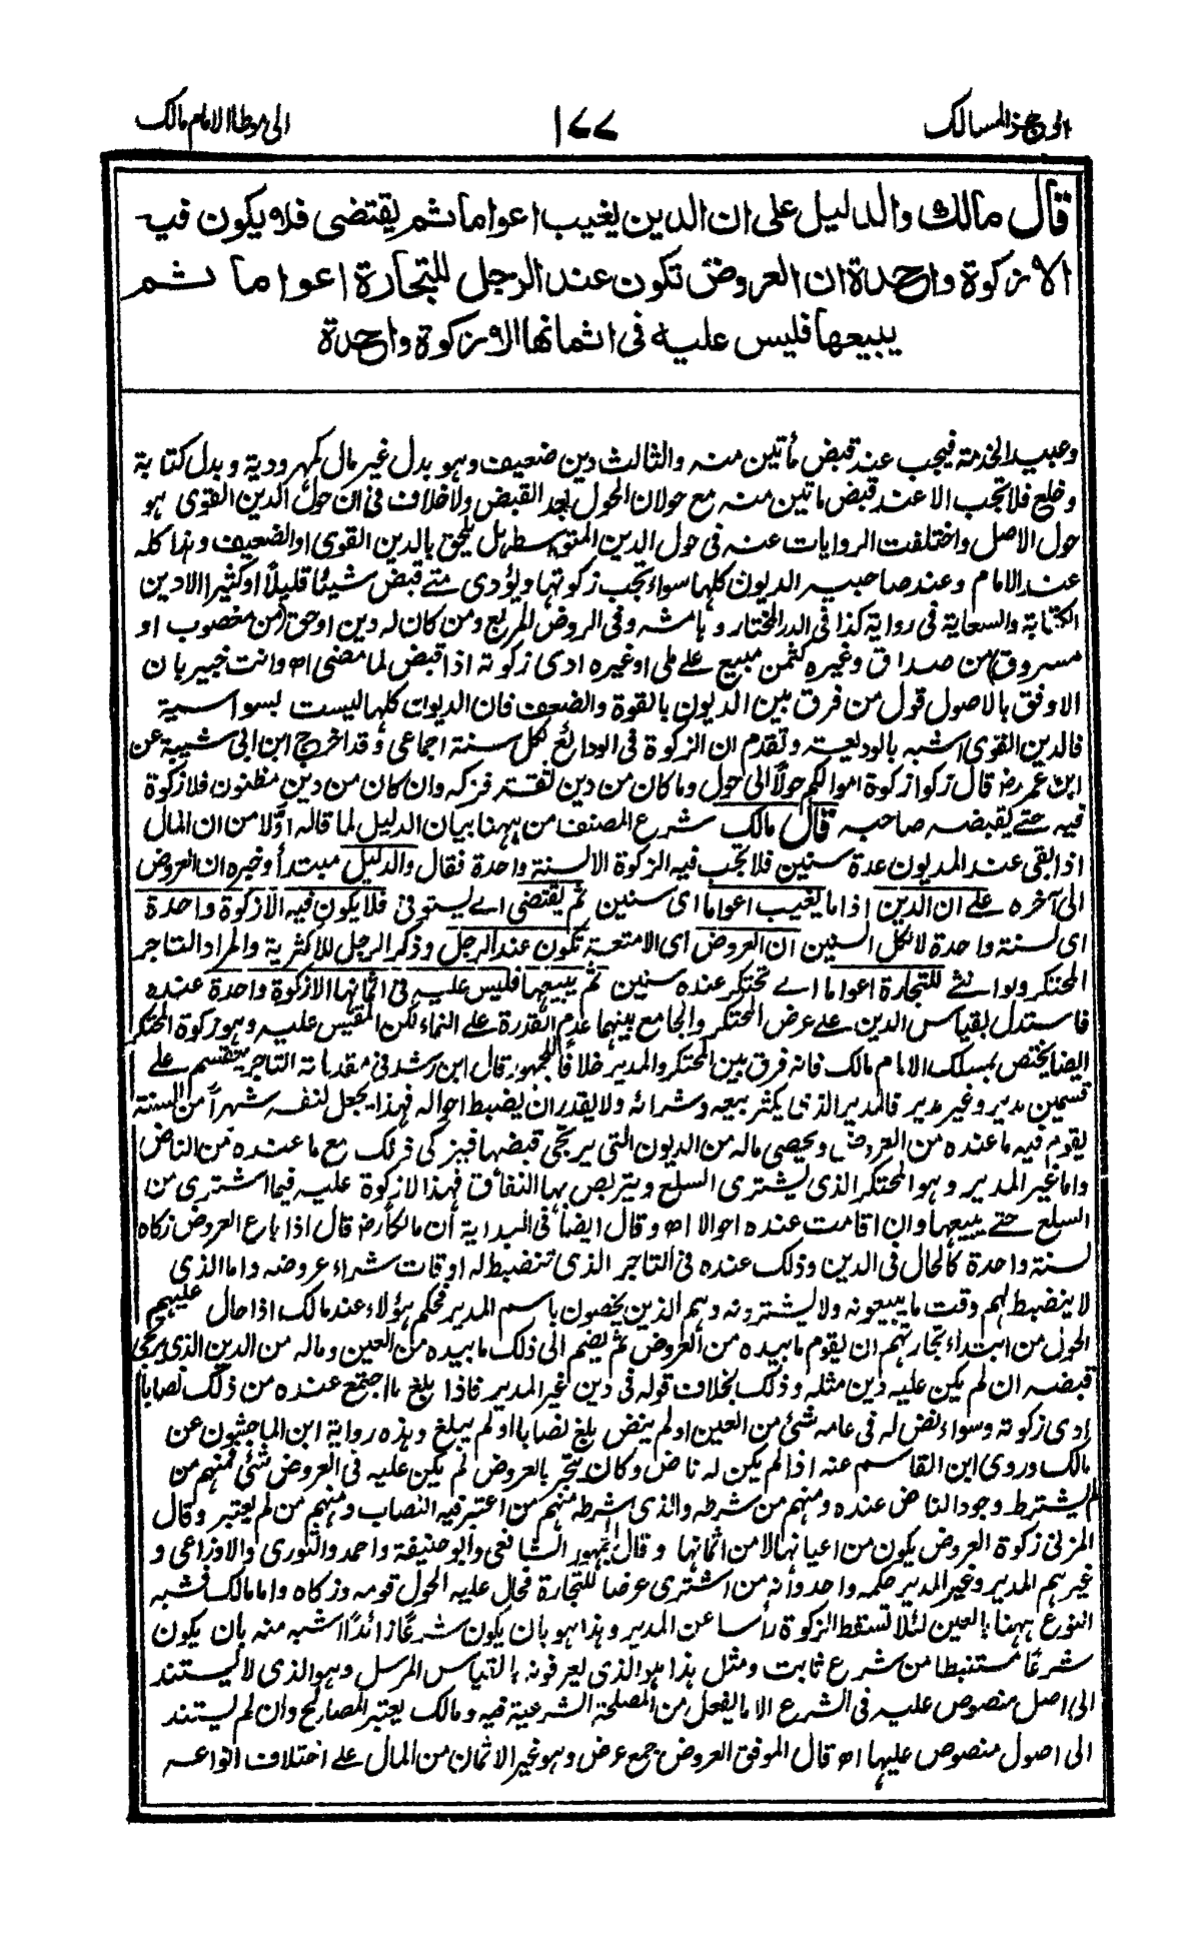 اوجز المسالك ١٧٧ الى موطا الامام مالك
قال مالك والدليل على ان الدين يغيب اعواما ثم يقتضى فلا يكون فيه
الا زكوة واحدة ان العروض تكون عند الرجل للتجارة اعواما ثم
يبيعها فليس عليه فى اثمانها الا زكوة واحدة
وعبيد الخدمة فيجب عند قبض مأتين منه والثالث دين ضعيف وهو بدل غير مال كمهر ودية وبدل كتابة
وخلع فلا تجب الا عند قبض مأتين منه مع حولان الحول بعد القبض ولا خلاف فى ان حول الدين القوى هو
حول الاصل واختلفت الروايات عنه فى حول الدين المتوسط هل يلحق بالدين القوى او الضعيف وهذا كله
عند الامام وعند صاحبيه الديون كلها سواء تجب زكوتها ويؤدى متى قبض شيئا قليلا او كثيرا الا دين
الكتابة والسعاية فى رواية كذا فى الدر المختار وهامشه وفى الروض المربع ومن كان له دين او حق (من مغصوب او
مسروق) من صداق وغيره كثمن مبيع على ملى او غيره ادى زكوته اذا قبض لما مضى اه وانت خبير بان
الاوفق بالاصول قول من فرق بين الديون بالقوة والضعف فان الديون كلها ليست بسواسية
فالدين القوى اشبه بالوديعة وتقدم ان الزكوة فى الودائع لكل سنة اجماعى وقد اخرج ابن ابى شيبة عن
ابن عمر رض قال زكوا زكوة اموالكم حولا الى حول وما كان من دين ثقة فزكه وان كان من دين مظنون فلا زكوة
فيه حتى يقبضه صاحبه قال مالك شرع المصنف من ههنا بيان الدليل لما قاله اولا من ان المال
اذا بقى عند المديون عدة سنين فلا تجب فيه الزكوة الا لسنة واحدة فقال والدليل مبتدأ وخبره ان العروض
الى آخره على ان الدين اذا ما يغيب اعواما اى سنين ثم يقتضى اى يستوفى فلا يكون فيه الا زكوة واحدة
اى لسنة واحدة لا لكل السنين ان العروض اى الامتعة تكون عند الرجل وذكر الرجل للاكثرية والمراد التاجر
المحتكر ولو انثى للتجارة اعواما اى تحتكر عنده سنين ثم يبيعها فليس عليه فى اثمانها الا زكوة واحدة عنده
فاستدل بقياس الدين على عرض المحتكر والجامع بينهما عدم القدرة على النماء لكن المقيس عليه وهو زكوة المحتكر
ايضا يختص بمسلك الامام مالك فانه فرق بين المحتكر والمدير خلافا للجمهور قال ابن رشد فى مقدماته التاجر ينقسم على
قسمين مدير وغير مدير فالمدير الذى يكثر بيعه وشرائه ولا يقدر ان يضبط احواله فهذا يجعل لنفسه شهرا من السنة
يقوم فيه ما عنده من العروض ويحصى ماله من الديون التى يرتجى قبضها فيزكى ذلك مع ما عنده من الناض
واما غير المدير وهو المحتكر الذى يشترى السلع ويتربص بها النفاق فهذا لا زكوة عليه فيما اشترى من
السلع حتى يبيعها وان اقامت عنده احوالا اه وقال ايضا فى البداية ان مالكا رض قال اذا باع العروض زكاه
لسنة واحدة كالحال فى الدين وذلك عنده فى التاجر الذى تنضبط له اوقات شراء عروضه واما الذى
لا ينضبط لهم وقت ما يبيعونه ولا يشترونه وهم الذين يخصون باسم المدير فحكم هؤلاء عند مالك اذا حال عليهم
الحول من ابتداء تجارتهم ان يقوم ما بيده من العروض ثم يضم الى ذلك ما بيده من العين وماله من الدين الذى يرتجى
قبضه ان لم يكن عليه دين مثله وذلك بخلاف قوله فى دين غير المدير فاذا بلغ ما اجتمع عنده من ذلك نصابا
ادى زكوته وسواء نض له فى عامه شئ من العين او لم ينض بلغ نصابا او لم يبلغ وهذه رواية ابن الماجشون عن
مالك وروى ابن القاسم عنه اذا لم يكن له ناض وكان يتجر بالعروض لم يكن عليه فى العروض شئ فمنهم من
لم يشترط وجود الناض عنده ومنهم من شرطه والذى شرطه منهم من اعتبر فيه النصاب ومنهم من لم يعتبر وقال
المزنى زكوة العروض يكون من اعيانها لا من اثمانها وقال الجمهور الشافعى وابو حنيفة واحمد والثورى والاوزاعى و
غيرهم المدير وغير المدير حكمه واحد وأنه من اشترى عرضا للتجارة فحال عليه الحول قومه وزكاه واما مالك فشبه
النوع ههنا بالعين لئلا تسقط الزكوة رأسا عن المدير وهذا هو بان يكون شرعا زائدا اشبه منه بان يكون
شرعا مستنبطا من شرع ثابت ومثل هذا هو الذى يعرفونه بالقياس المرسل وهو الذى لا يستند
الى اصل منصوص عليه فى الشرع الا ما يفعل من المصلحة الشرعية فيه ومالك يعتبر المصالح وان لم يستند
الى اصول منصوص عليها اه قال الموفق العروض جمع عرض وهو غير الاثمان من المال على اختلاف انواعه